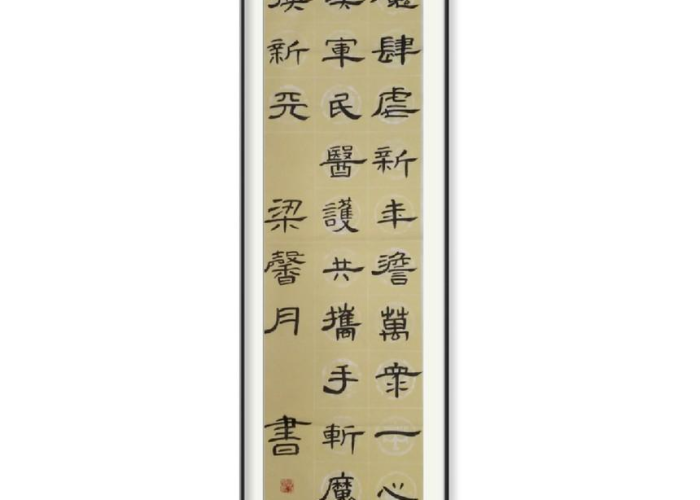 魔肆虐新年澹萬衆一心
軍民醫護共攜手斬魔
換新天
梁馨月
書